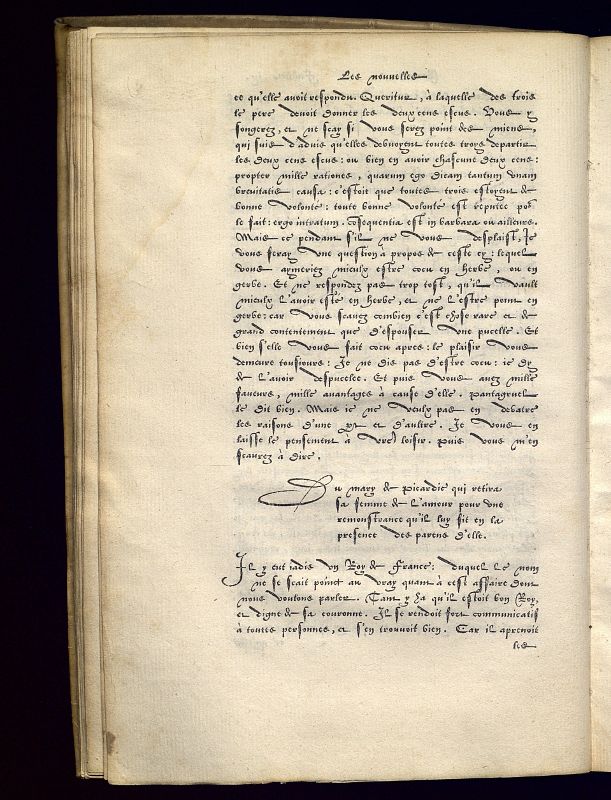 Les nouvelles
ce qu'elle auoit respondu. Queritur, à laquelle des trois
le pere deuoit donner les deux cens escus. Vous y
songerez, et ne scay si vous serez point des miens,
qui suis d'aduis qu'elles debuoyent toutes troys departir
les deux cens escus: ou bien en auoir chascune deux cens:
propter mille rationes, quarum ego dicam tantum vnam
breuitatis causa: c'estoit que toutes trois estoyent de
bonne volonte: toute bonne volonte est reputee pour
le fait: ergo in tantum consequentia est in barbara ou ailleurs.
Mais ce pendant s'il ne vous desplaist, Je
vous feray vne question à propos de ceste cy: lequel
vous aymeriez mieulx estre cocu en herbe, ou en
gerbe. Et ne respondez pas trop tost, qu'il vault
mieulx l'auoir esté en herbe, et ne l'estre point en
gerbe: car vous scauez combien c'est chose rare et de
grand contentement que d'espouser vne pucelle. Et
bien s'elle vous fait cocu apres: le plaisir vous
demeure tousiours: Je ne dis pas d'estre cocu: ie dy
de l'auoir despucelee. Et puis vous auez mille
faueurs, mille auantages à cause d'elle. Pantagruel
le dit bien. Mais ie ne veulx pas en debatre
les raisons d'une part et d'aultre. Je vous en
laisse le pensement à vostre loisir. Puis vous m'en
scaurez à dire.
Du mary de Picardie qui retira
sa femme de l'amour par vne
remonstrance qu'il luy fit en la
presence des parens d'elle.
Il y eut iadis vn Roy de France: duquel le nom
ne se scait poinct au vray quant à cest affaire dont
nous voulons parler. Tant y ha qu'il estoit bon Roy,
et digne de sa couronne. Il se rendoit fort communicatif
à toutes personnes, et s'en trouuoit bien. Car il aprenoit
les